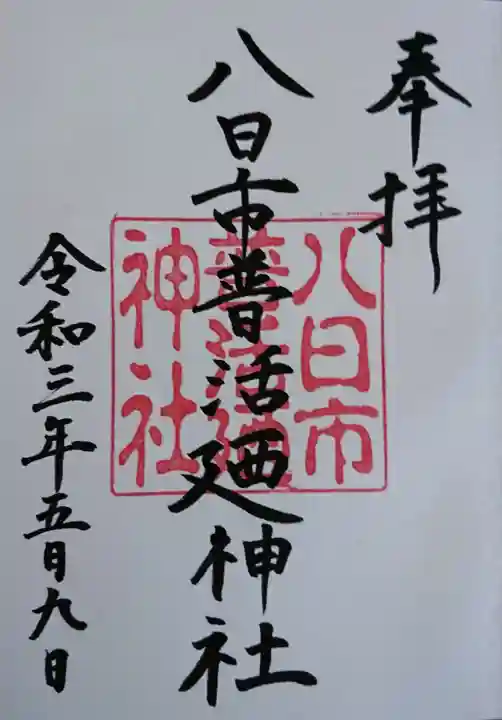 奉拝
八日市普活廼神社
八日市
普活廼
神社
令和三年五月九日